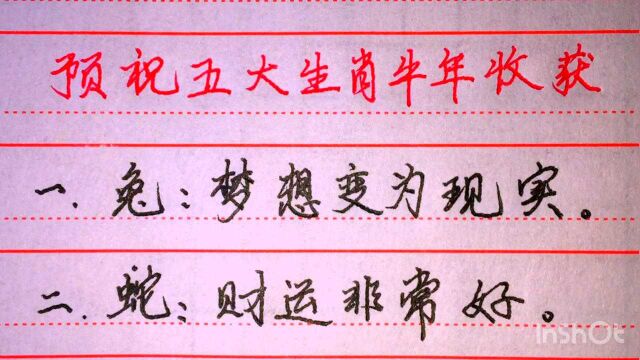 预祝五大生肖牛年收获
一.兔:梦想变为现实。
二.蛇:财运非常好。
InShOt